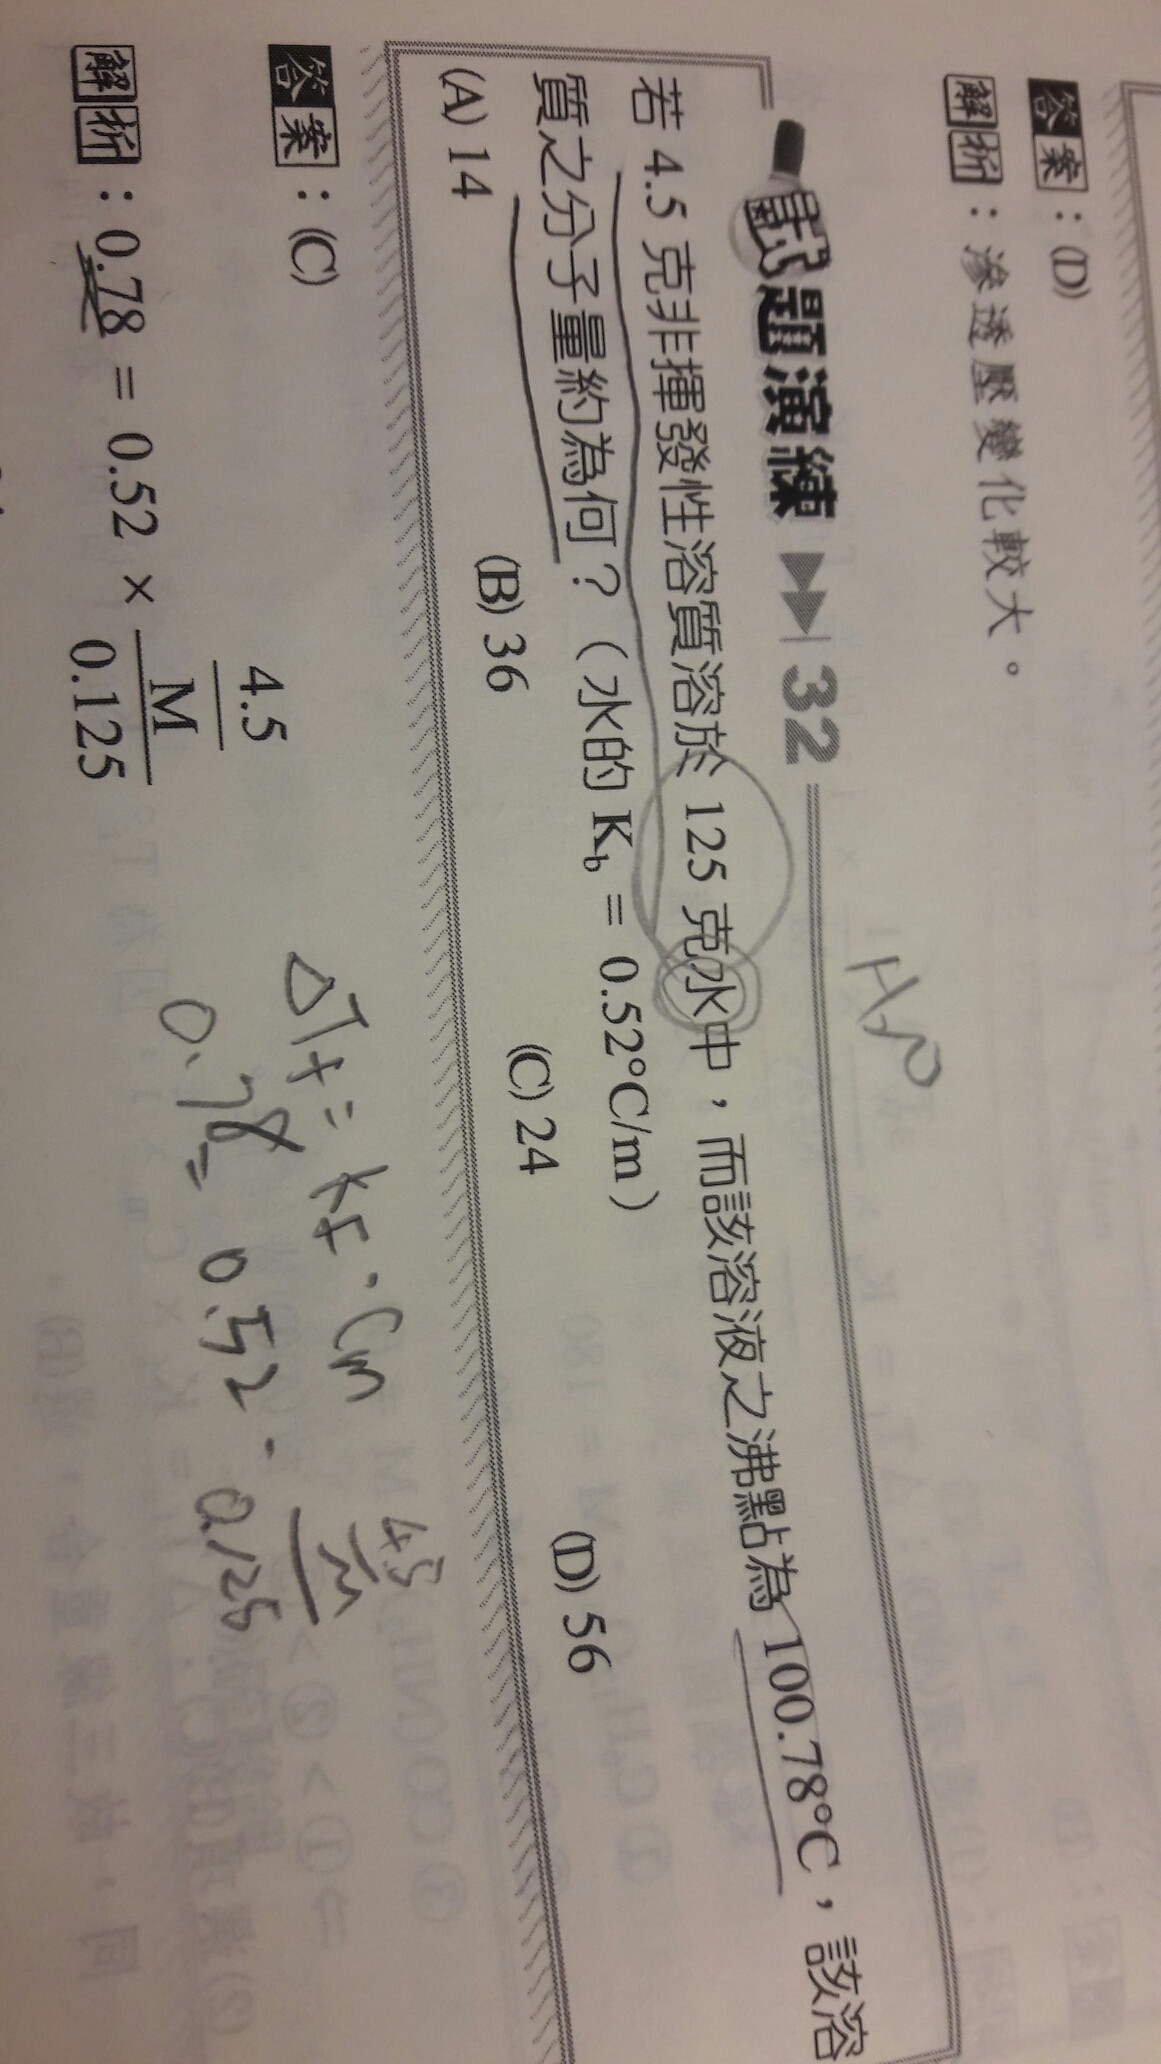 答案：(D)
解析：滲透壓變化較大。
H₂O
試題演練 ▶▶| 32
若 4.5 克非揮發性溶質溶於 125 克水中，而該溶液之沸點為 100.78°C，該溶
質之分子量約為何？（水的 K_b = 0.52°C/m）
(A) 14 (B) 36 (C) 24 (D) 56
答案：(C)
解析：0.78 = 0.52 × \frac{\frac{4.5}{M}}{0.125}
ΔTf = kf · Cm
0.78 = 0.52 · \frac{\frac{4.5}{M}}{0.125}